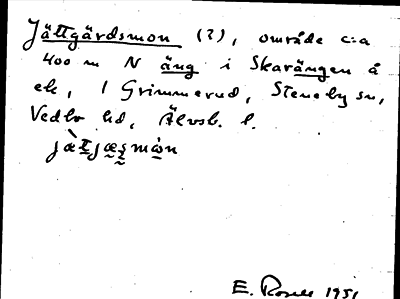 Jättgärdsmon (?), område c:a
400 m N äng i Skarängen å
ek, 1 Grimmerud, Steneby sn,
Vedbo hd, Älvsb. l.
jæ̀t̠jæʂmòn
E. Rosell 1951